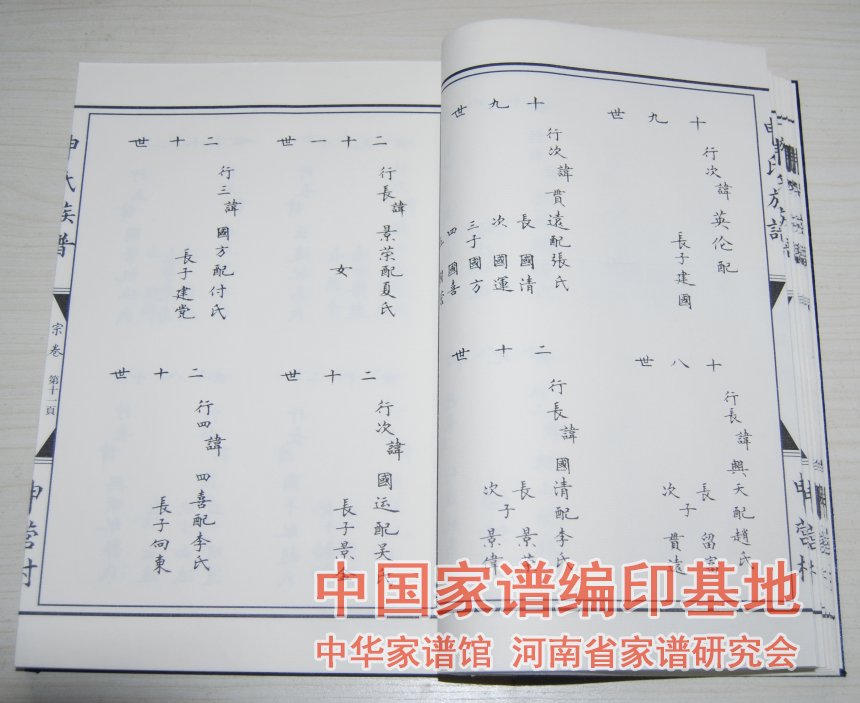 申氏族譜
十九世
行次諱英伦配
長子建國
十九世
行次諱貴遠配張氏
長國清
次國運
三子國方
四國喜
十八世
行長諱興天配趙氏
長留
次子貴遠
二十世
行長諱國清配李氏
長子景
次景偉
二十一世
行長諱景荣配夏氏
女
二十世
行三諱國方配付氏
長子建党
二十世
行次諱國运配吴氏
長子景
二十世
行四諱四喜配李氏
長子向東
申氏族譜
宗卷
第十一頁
申营村
中国家谱编印基地
中华家谱馆 河南省家谱研究会